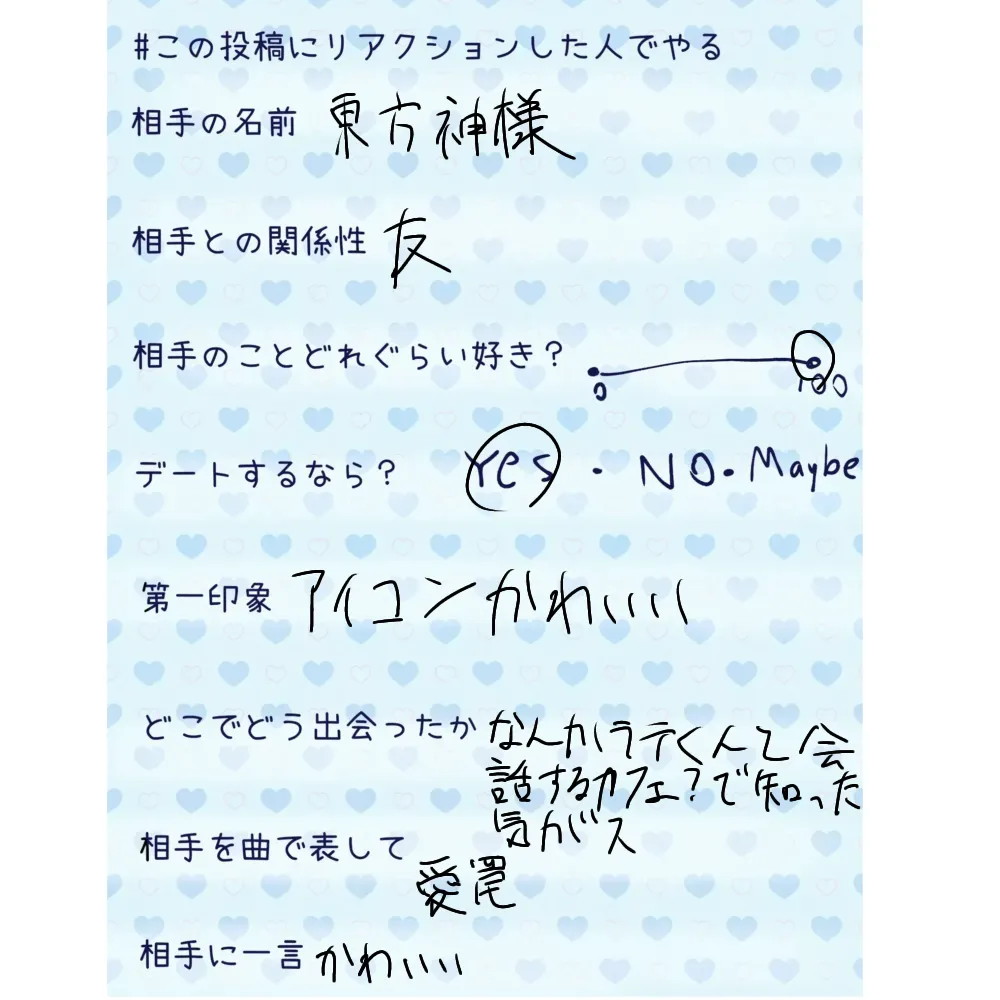 #この投稿にリアクションした人でやる
相手の名前 東方神様
相手との関係性 友
相手のことどれぐらい好き？
0 100
デートするなら？ Yes・NO・Maybe
第一印象 アイコンかわいいい
どこでどう出会ったか なんかラテくんて会
話するカフェ？で知った
気がス
相手を曲で表して
愛
相手に一言 かわいいい